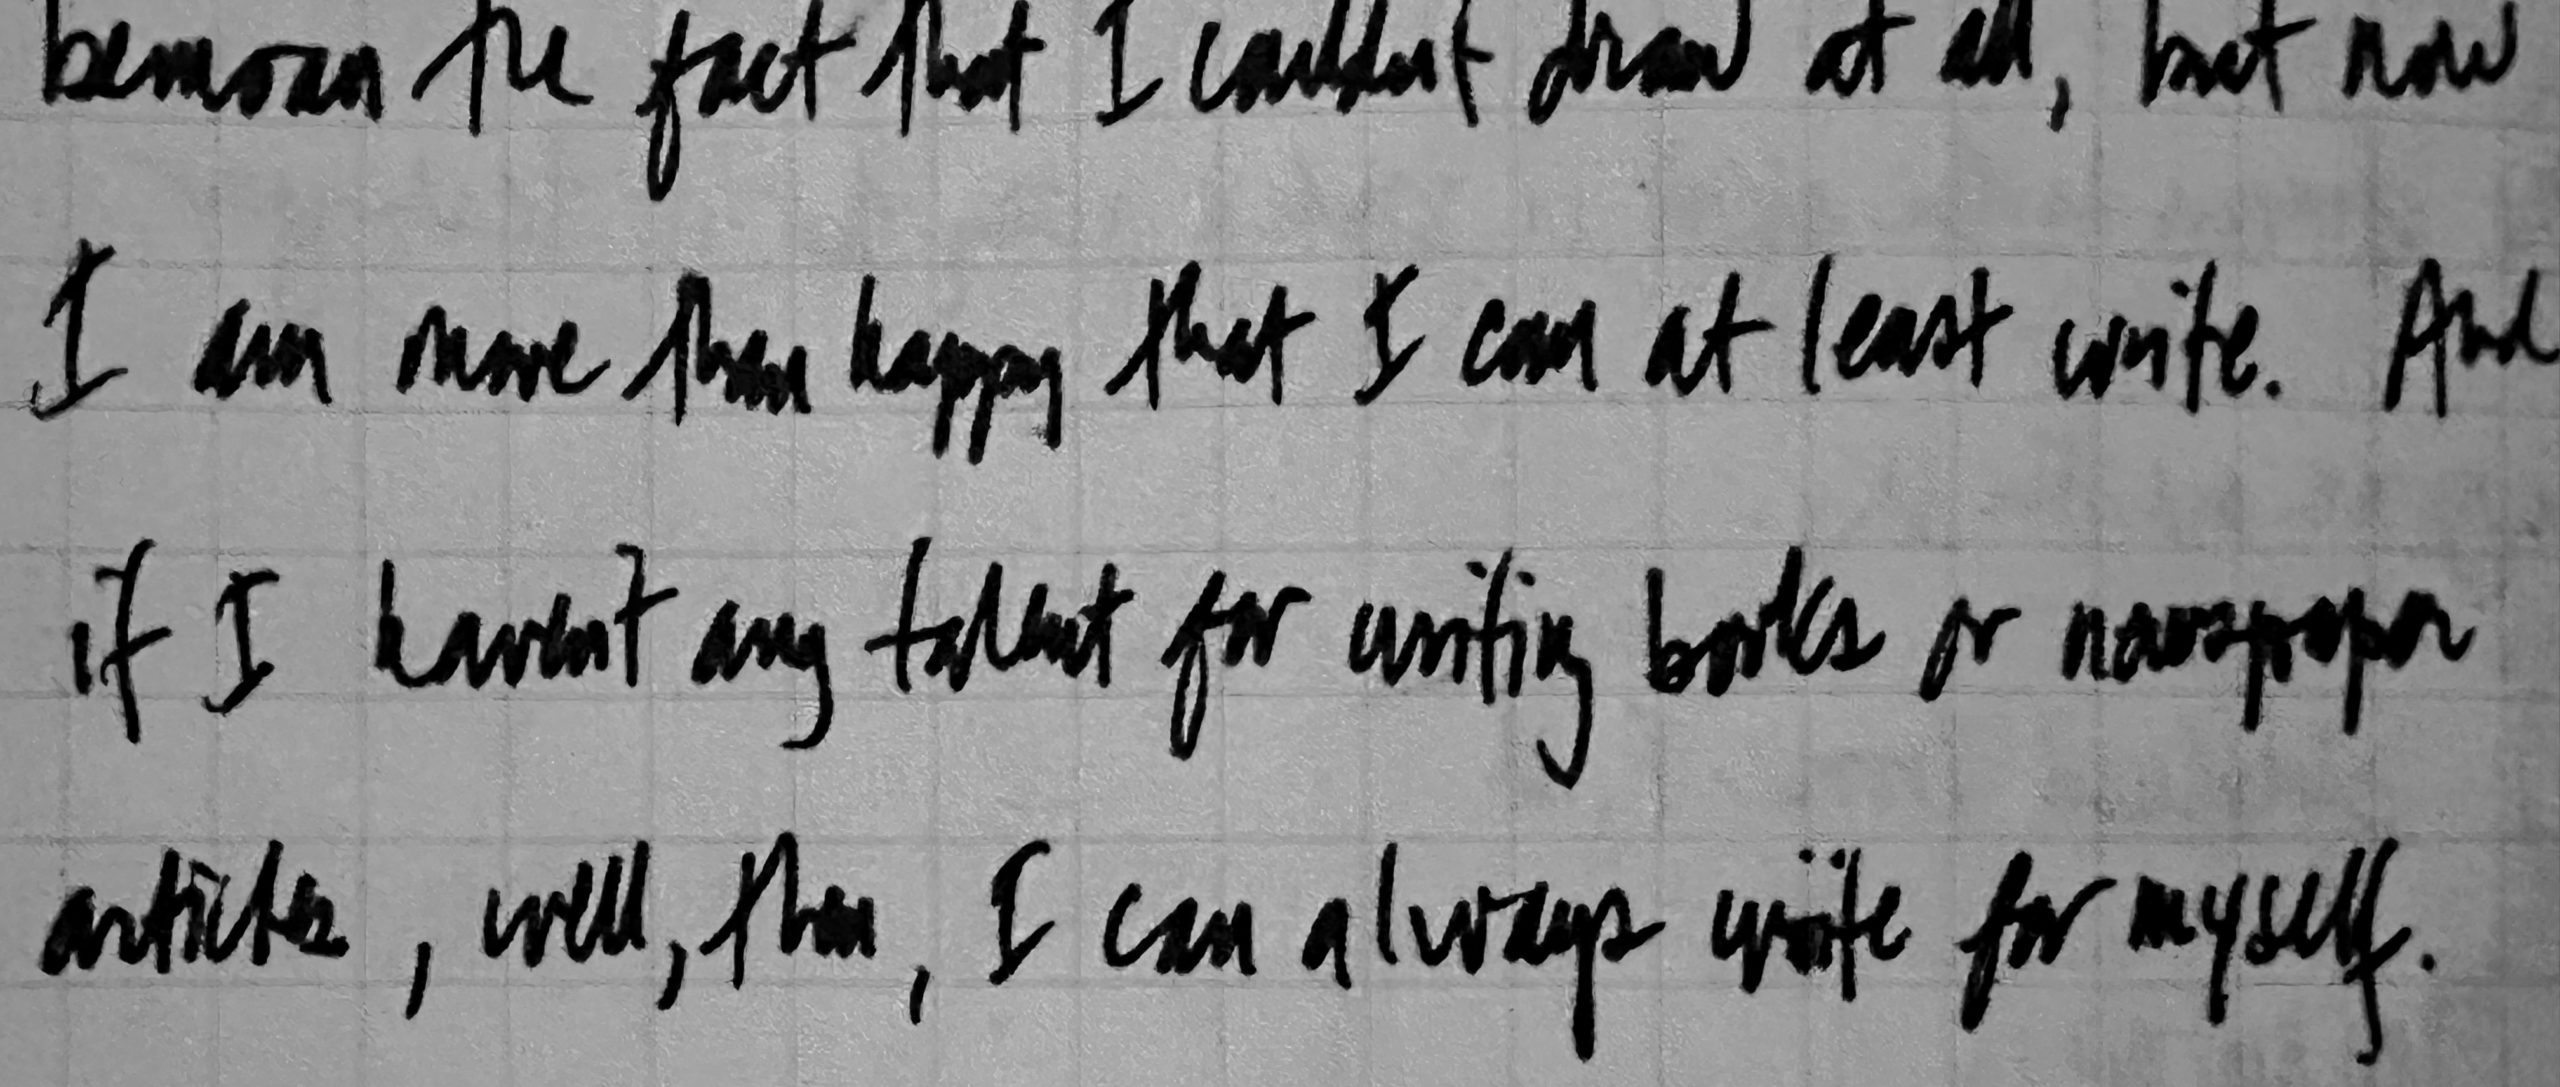 bemoan the fact that I couldn't draw at all, but now
I am more than happy that I can at least write. And
if I haven't any talent for writing books or newspaper
articles, well, then, I can always write for myself.